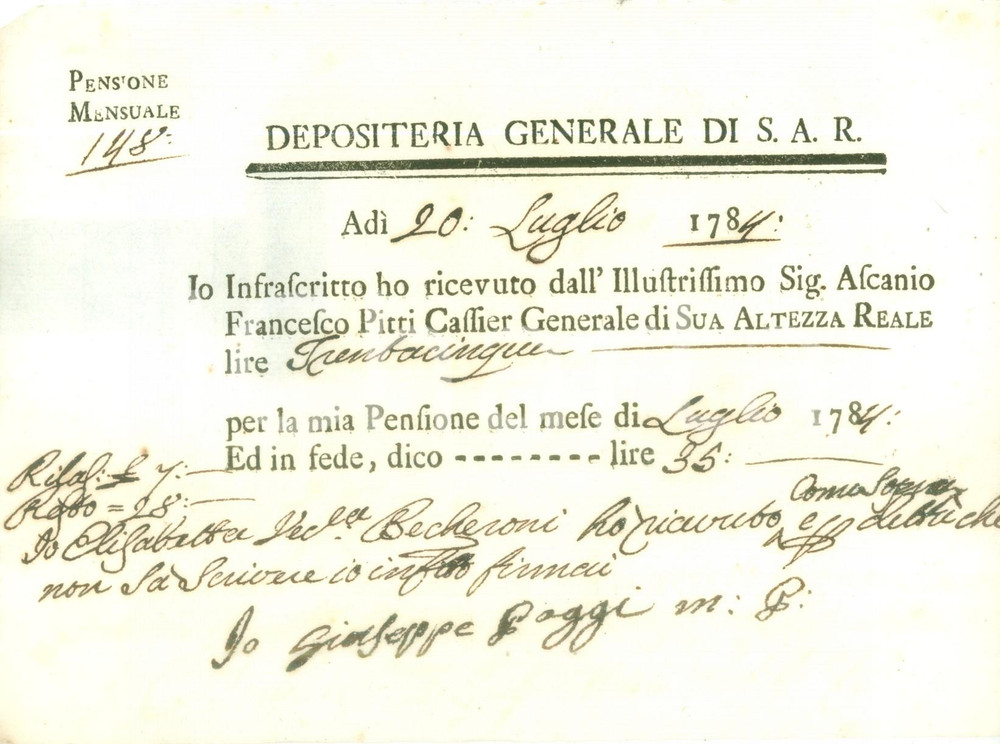 PENSIONE
MENSUALE
148:
DEPOSITERIA GENERALE DI S. A. R.
Adì 20: Luglio 1784:
Io Infraſcritto ho ricevuto dall' Illuſtriſſimo Sig. Aſcanio
Franceſco Pitti Caſſier Generale di SUA ALTEZZA REALE
lire Trentacinque
per la mia Penſione del meſe di Luglio 1784:
Ed in fede, dico -------- lire 35:
Rilas: £ 7:
Resto = 28:
Come Sopra
Io Elisabetta Ved.ª Becheroni ho ricevuto, e p detta che
non sà Scrivere io infrõ firmai
Io Giuseppe Poggi m: P: